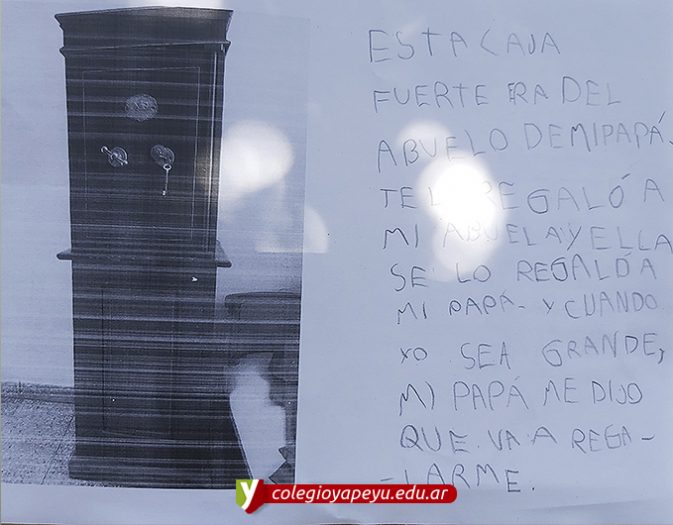 ESTA CAJA
FUERTE ERA DEL
ABUELO DE MI PAPÁ.
REGALÓ A
MI ABUELA Y ELLA
SE LO REGALÓ A
MI PAPÁ- Y CUANDO
YO SEA GRANDE,
MI PAPÁ ME DIJO
QUE VA A REGA-
-LARME.
y colegioyapeyu.edu.ar